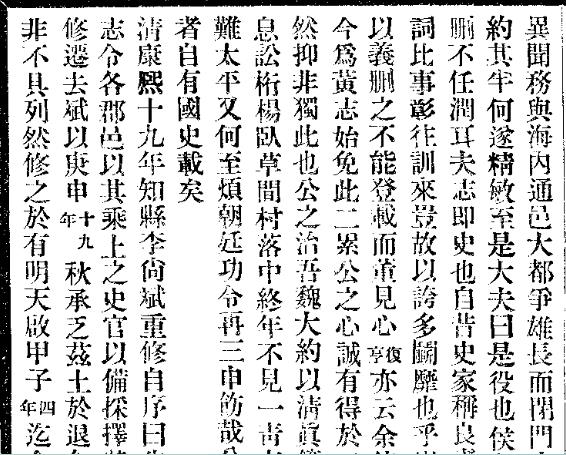 異聞務與海內通邑大都爭雄長而閉門
約其牢何遂精敏至是大夫曰是役也侯
刪不任潤耳夫志卽史也自昔史家稱良
詞比事彰往訓來豈故以誇多鬭靡也乎
以義刪之不能登載而董見心復亨亦云余
今爲黃志始免此二累公之心誠有得於
然抑非獨此也公之治吾魏大約以清眞
息訟桁楊臥草間村落中終年不見一靑
難太平又何至煩朝廷功令再三申飭哉
者自有國史載矣
清康熙十九年知縣李尙斌重修自序曰
志令各郡邑以其乘上之史官以備採擇
修遷去斌以庚申十九年秋承乏茲土於退
非不具列然修之於有明天啟甲子四年迄